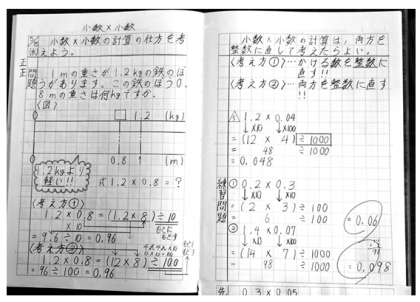 小数×小数
小数×小数の計算の仕方を考えよう。
問題
1mの重さが1.2kgの鉄のぼうがあります。この鉄のぼう0.8mの重さは何kgですか。
(図)
0 □ 1.2 (kg)
0 0.8 1 (m)
1.2kgより
軽い!!
式 1.2×0.8=?
(考え方①)
1.2×0.8=(1.2×8)÷10
×10
=9.6÷10=0.96
(考え方②)
1.2×0.8=(12×8)÷100
=96÷100=0.96
小数×小数の計算は、両方を
整数に直して考えたらよい。
(考え方①)…かける数を整数に
直す!!
(考え方②)…両方を整数に直す
!!
1.2×0.04
↓×10 ↓×100
=(12×4)÷1000
=48÷1000
=0.048
練習問題
① 0.2×0.3
↓×10 ↓×10
=(2×3)÷100
=6÷100
=0.06
② 1.4×0.07
↓×10 ↓×100
=(14×7)÷1000
=98÷1000
=0.098
0.3×0.05